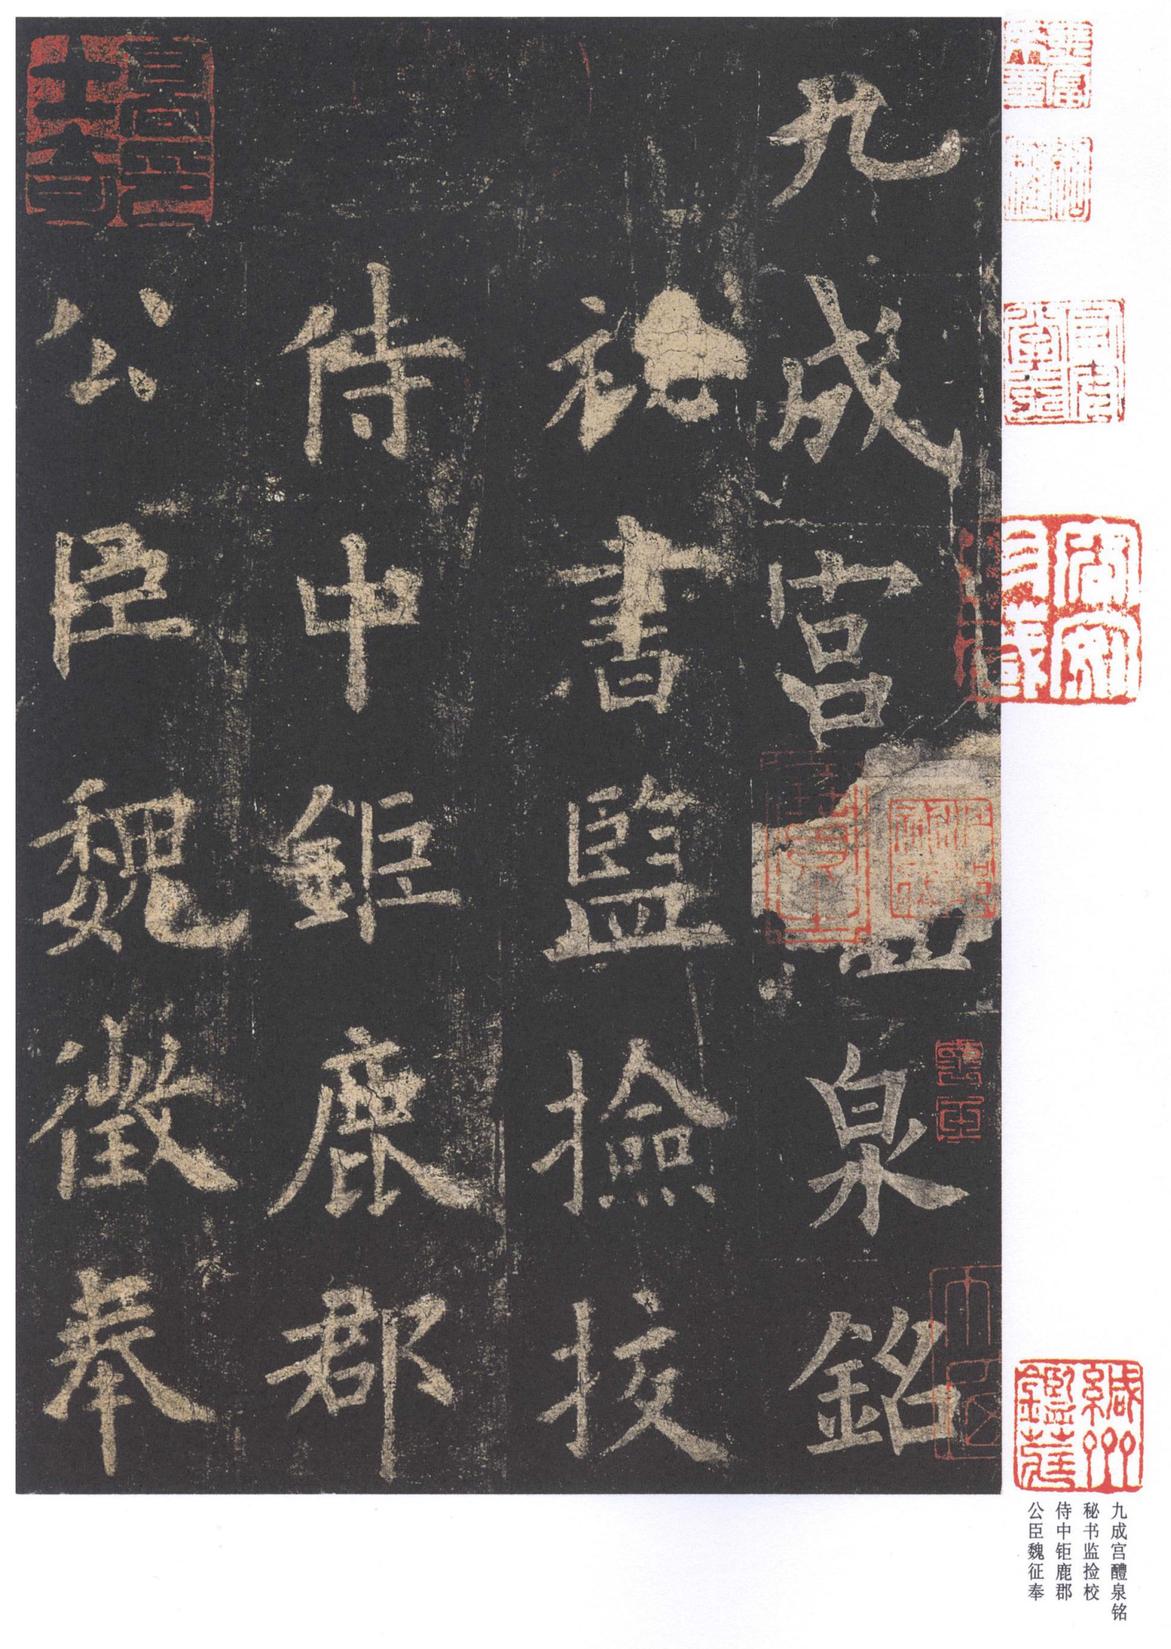 九成宮泉銘
祕書監撿挍
侍中鉅鹿郡
公臣魏徵奉
九成宫醴泉铭
秘书监捡校
侍中钜鹿郡
公臣魏征奉